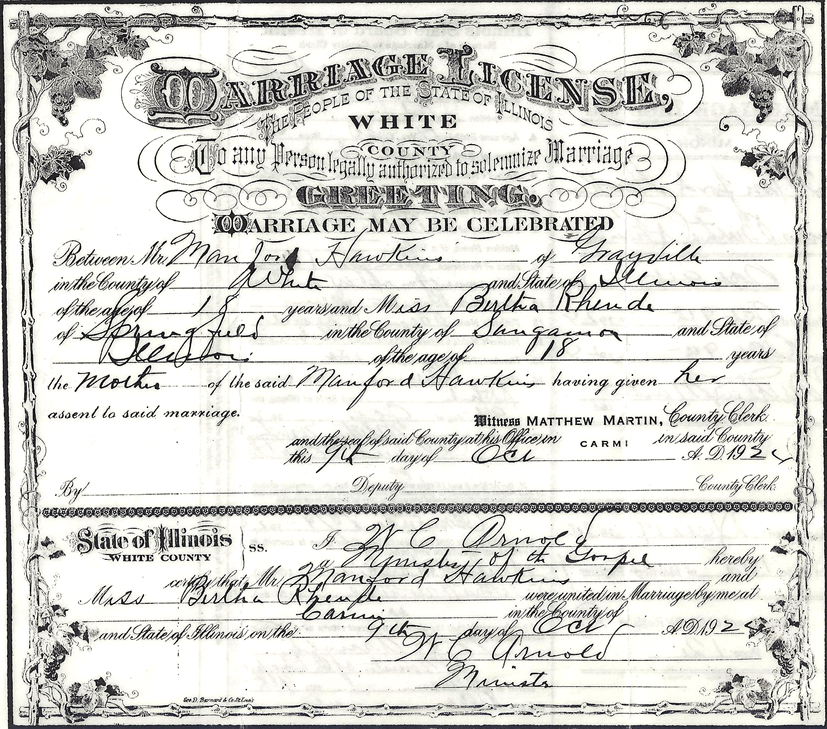 MARRIAGE LICENSE,
THE PEOPLE OF THE STATE OF ILLINOIS
WHITE
COUNTY
To any Person legally authorized to solemnize Marriage
GREETING.
MARRIAGE MAY BE CELEBRATED
Between Mr. Manford Hawkins of Grayville
in the County of White and State of Illinois
of the age of 18 years and Miss Bertha Rhende
of Springfield in the County of Sangamon and State of
Illinois of the age of 18 years
the Mother of the said Manford Hawkins having given her
assent to said marriage.
Witness MATTHEW MARTIN, County Clerk
and the seal of said County at his Office in CARMI in said County
this 9th day of Oct A.D. 192
By Deputy County Clerk
State of Illinois
WHITE COUNTY
ss. I W C Arnold
a Minister of the Gospel hereby
certify that Mr. Manford Hawkins and
Miss Bertha Rhende were united in Marriage by me at
Carmi in the County of
and State of Illinois on the 9th day of Oct A.D. 192
W C Arnold
Minister
Geo. D. Barnard & Co. St. Louis